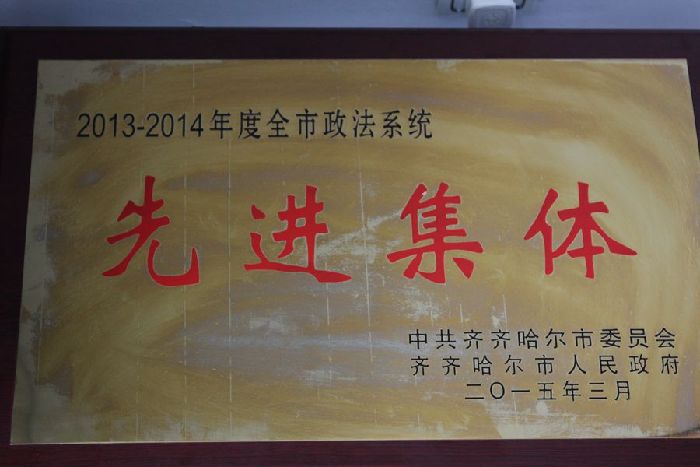 2013-2014年度全市政法系统
先进集体
中共齐齐哈尔市委员会
齐齐哈尔市人民政府
二〇一五年三月